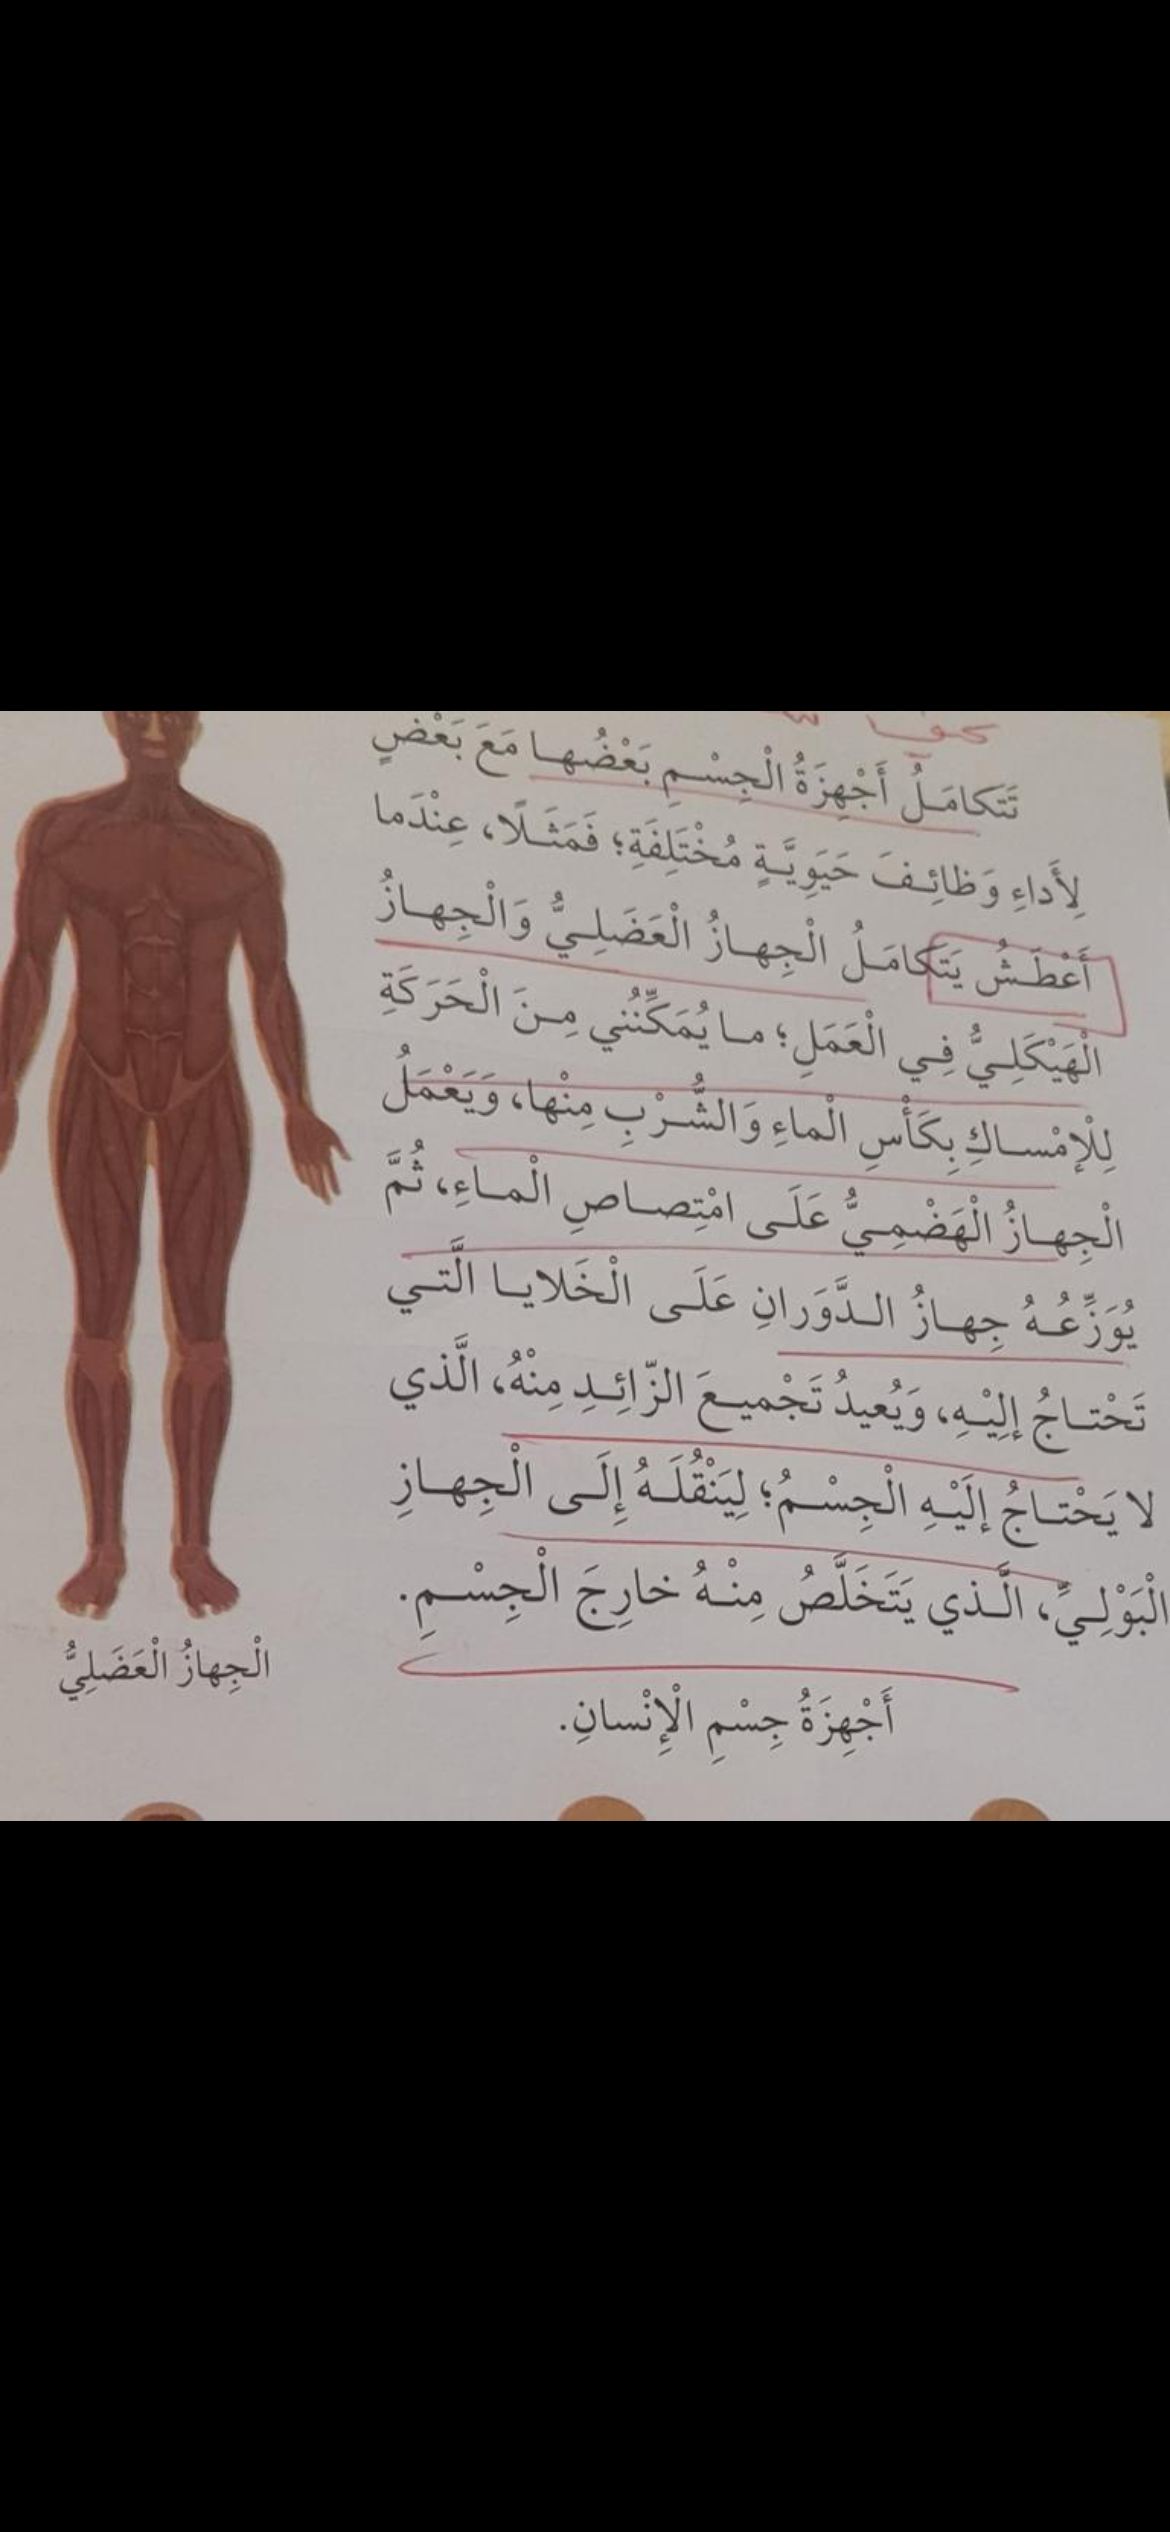 تَتَكامَلُ أَجْهِزَةُ الْجِسْمِ بَعْضُها مَعَ بَعْضٍ
لِأَداءِ وَظائِفَ حَيَوِيَّةٍ مُخْتَلِفَةٍ؛ فَمَثَلًا، عِنْدَما
أَعْطَشُ يَتَكامَلُ الْجِهازُ الْعَضَلِيُّ وَالْجِهازُ
الْهَيْكَلِيُّ فِي الْعَمَلِ؛ ما يُمَكِّنُني مِنَ الْحَرَكَةِ
لِلْإِمْساكِ بِكَأْسِ الْماءِ وَالشُّرْبِ مِنْها، وَيَعْمَلُ
الْجِهازُ الْهَضْمِيُّ عَلَى امْتِصاصِ الْماءِ، ثُمَّ
يُوَزِّعُهُ جِهازُ الدَّوَرانِ عَلَى الْخَلايا الَّتي
تَحْتاجُ إِلِيْهِ، وَيُعيدُ تَجْميعَ الزّائِدِ مِنْهُ، الَّذي
لا يَحْتاجُ إِلَيْهِ الْجِسْمُ؛ لِيَنْقُلَهُ إِلَى الْجِهازِ
الْبَوْلِيِّ، الَّذي يَتَخَلَّصُ مِنْهُ خارِجَ الْجِسْمِ.
الْجِهازُ الْعَضَلِيُّ
أَجْهِزَةُ جِسْمِ الْإِنْسانِ.